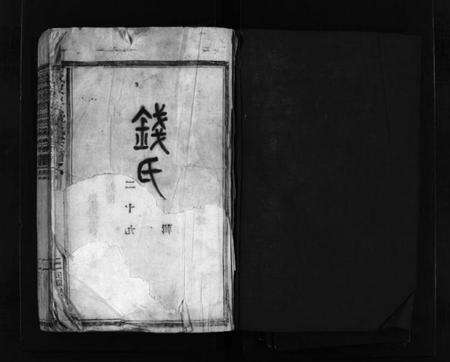 錢氏
二十九